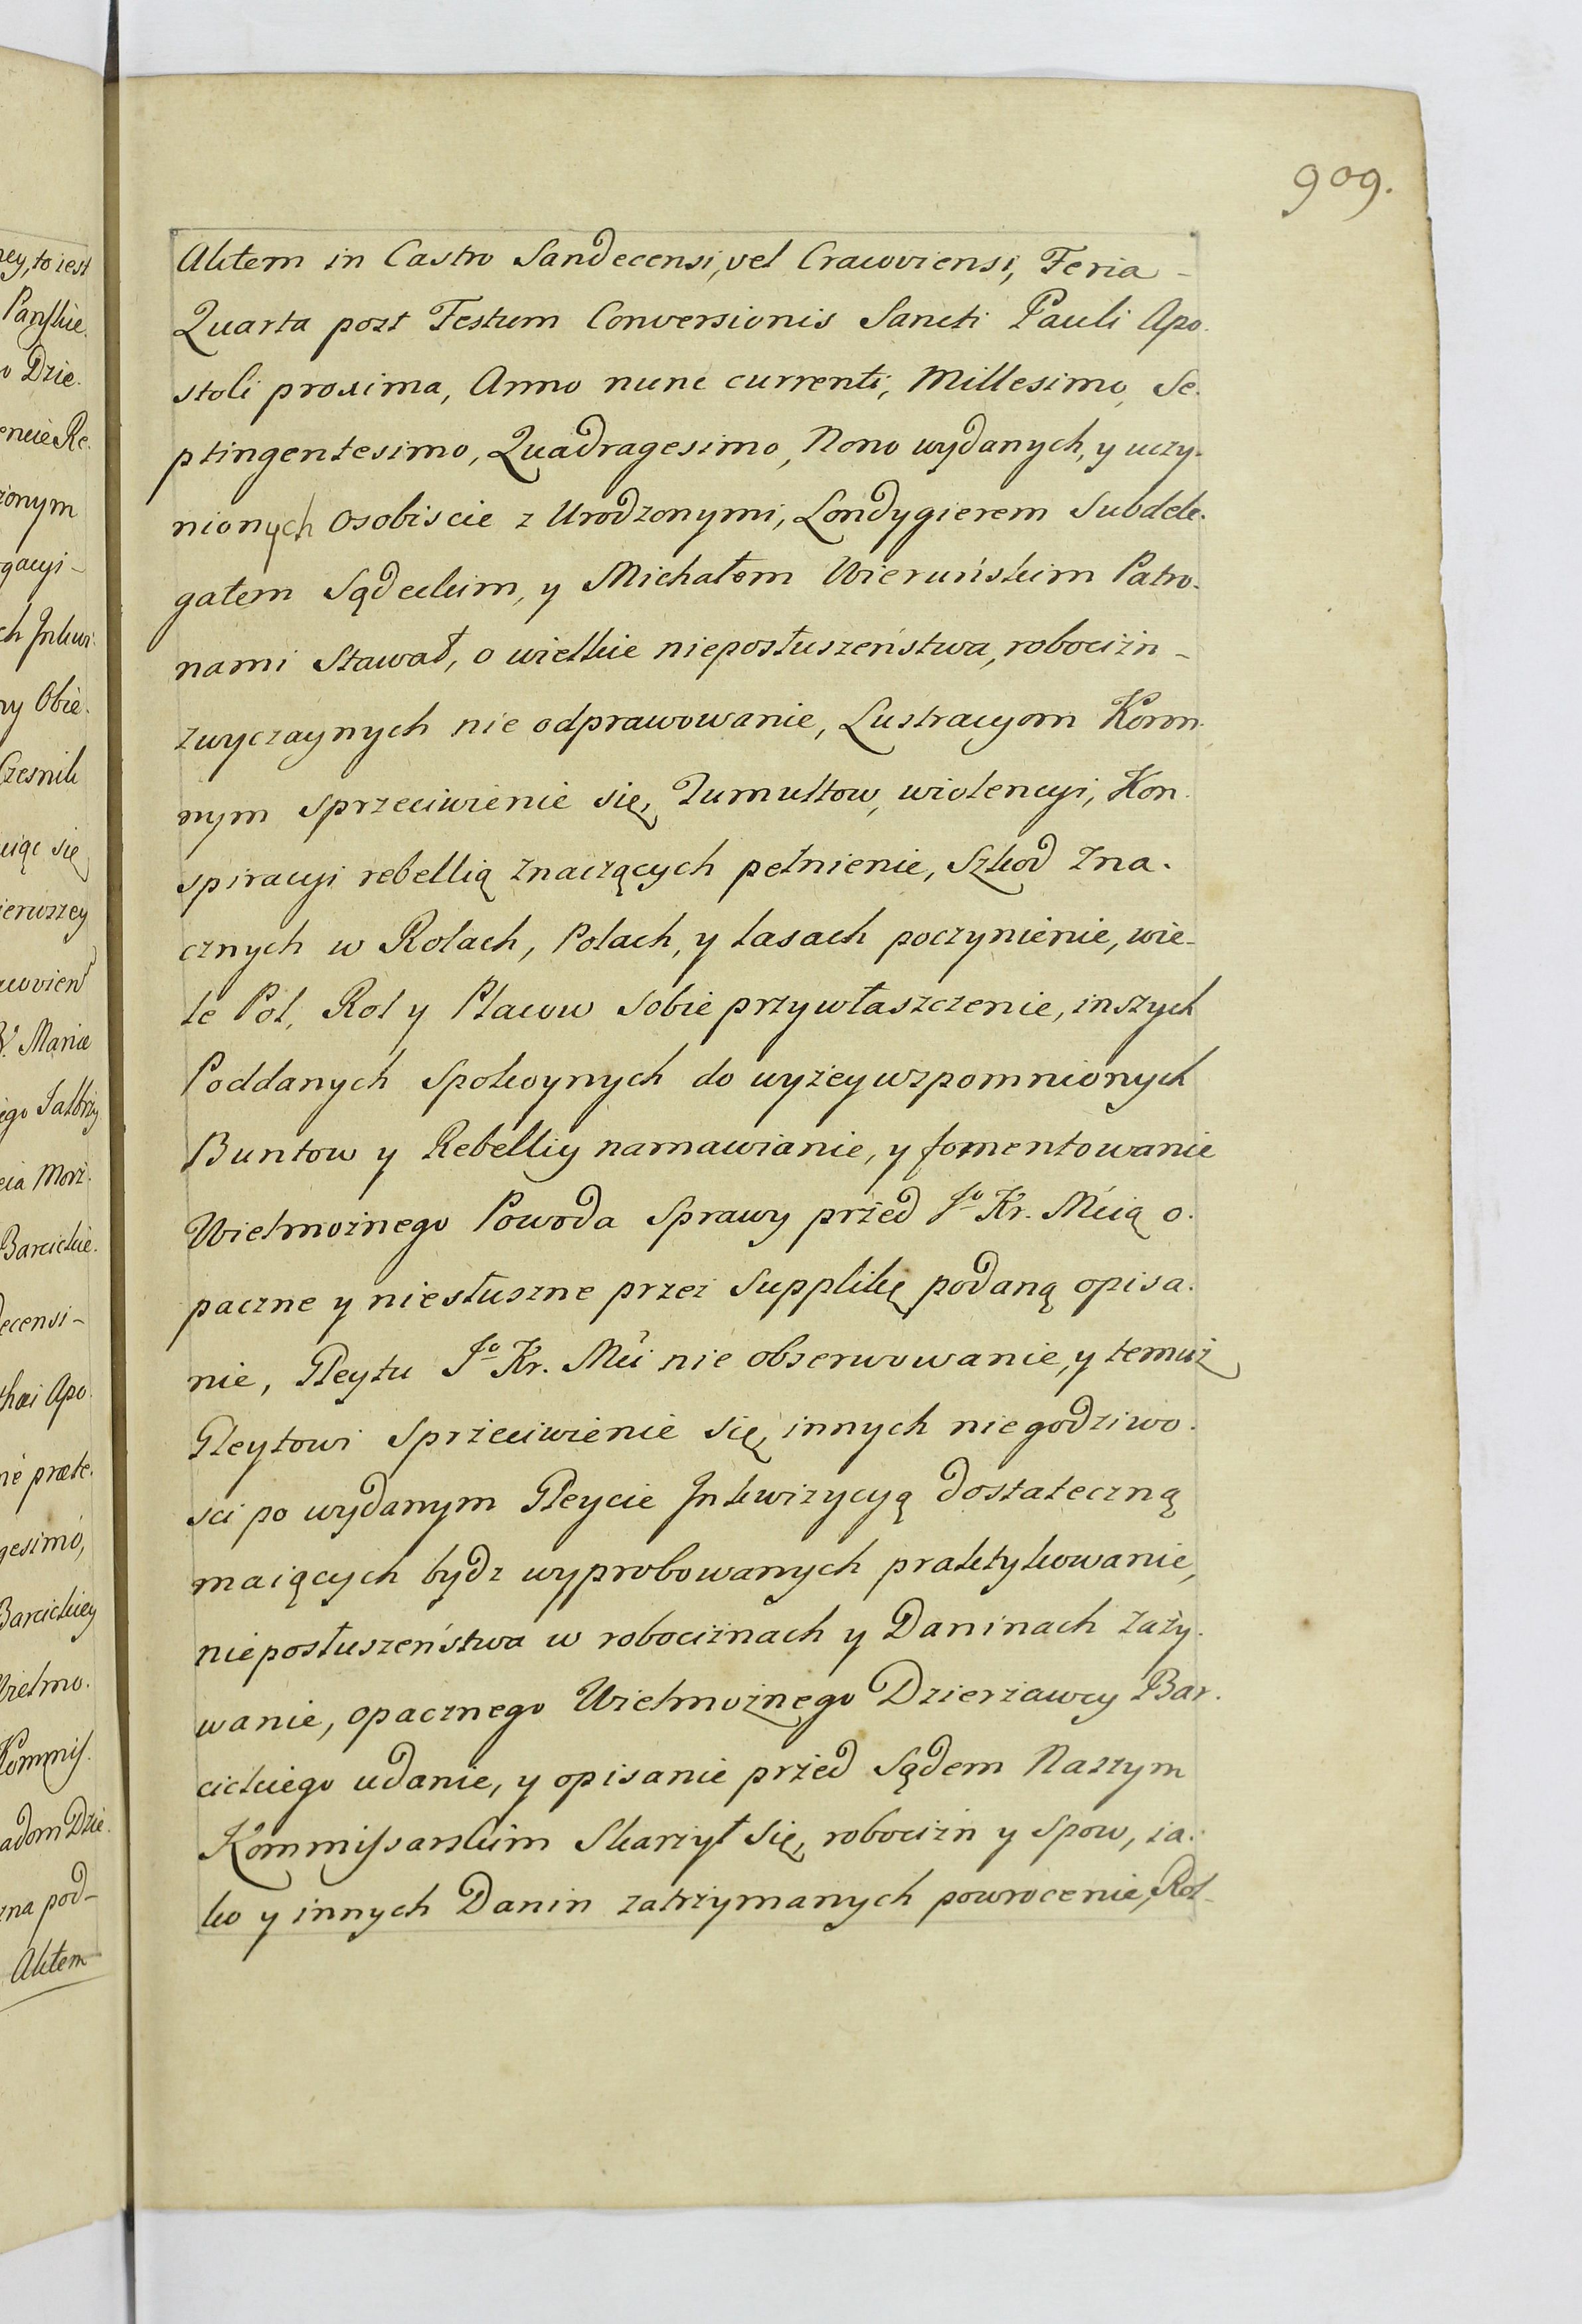 909.
Aktem in Castro Sandecensi, vel Cracoviensi, Feria -
Quarta post Festum Conversionis Sancti Pauli Apo.
stoli proxima, Anno nunc currenti, Millesimo, Se.
ptingentesimo, Quadragesimo, Nono wydanych, y uczy.
nionych osobiscie z Urodzonymi, Londygierem Subdele.
gatem Sądeckim, y Michałem Wieruńskim Patro.
nami Stawał, o wielkie nieposłuszeństwa, robocizn -
zwyczaynych nie odprawowanie, Lustracyom Koron.
nym sprzeciwienie się, Tumultow, wiolencyi, Kon.
spiracyi rebellią znaczących pełnienie, Szkod zna.
cznych w Rolach, Polach, y lasach poczynienie, wie-
le Pol, Rol y Placow sobie przywłaszczenie, inszych
Poddanych spokoynych do wyżey wspomnionych
Buntow y Rebelliy namawianie, y fomentowanie
Wielmożnego Powoda sprawy przed Jo Kr. Mcią o.
paczne y niesłuszne przez Supplikę podaną opisa.
nie, Gleytu Jo Kr. Mci nie obserwowanie, y temuż
Gleytowi sprzeciwienie się, innych niegodziwo.
sci po wydanym Gleycie Inkwizycyą dostateczną
maiących bydz wyprobowanych praktykowanie,
nieposłuszeństwa w robociznach y Daninach zaży.
wanie, opacznego Wielmożnego Dzierżawcy Bar.
cickiego udanie, y opisanie przed Sądem Naszym
Kommissarskim Skarżył się, robocizn y spow, ia.
ko y innych Danin zatrzymanych powrocenie, Rol-
ey, to iest
Panskie.
Dzie.
Re.
gacyi -
Obie.
Czesnik
się
Mariæ
Barcickie.
ecensi -
Apo
præte.
gesimo,
Barcickiey
Wielmo.
Kommis.
adom Dzie.
zna pod -
Aktem